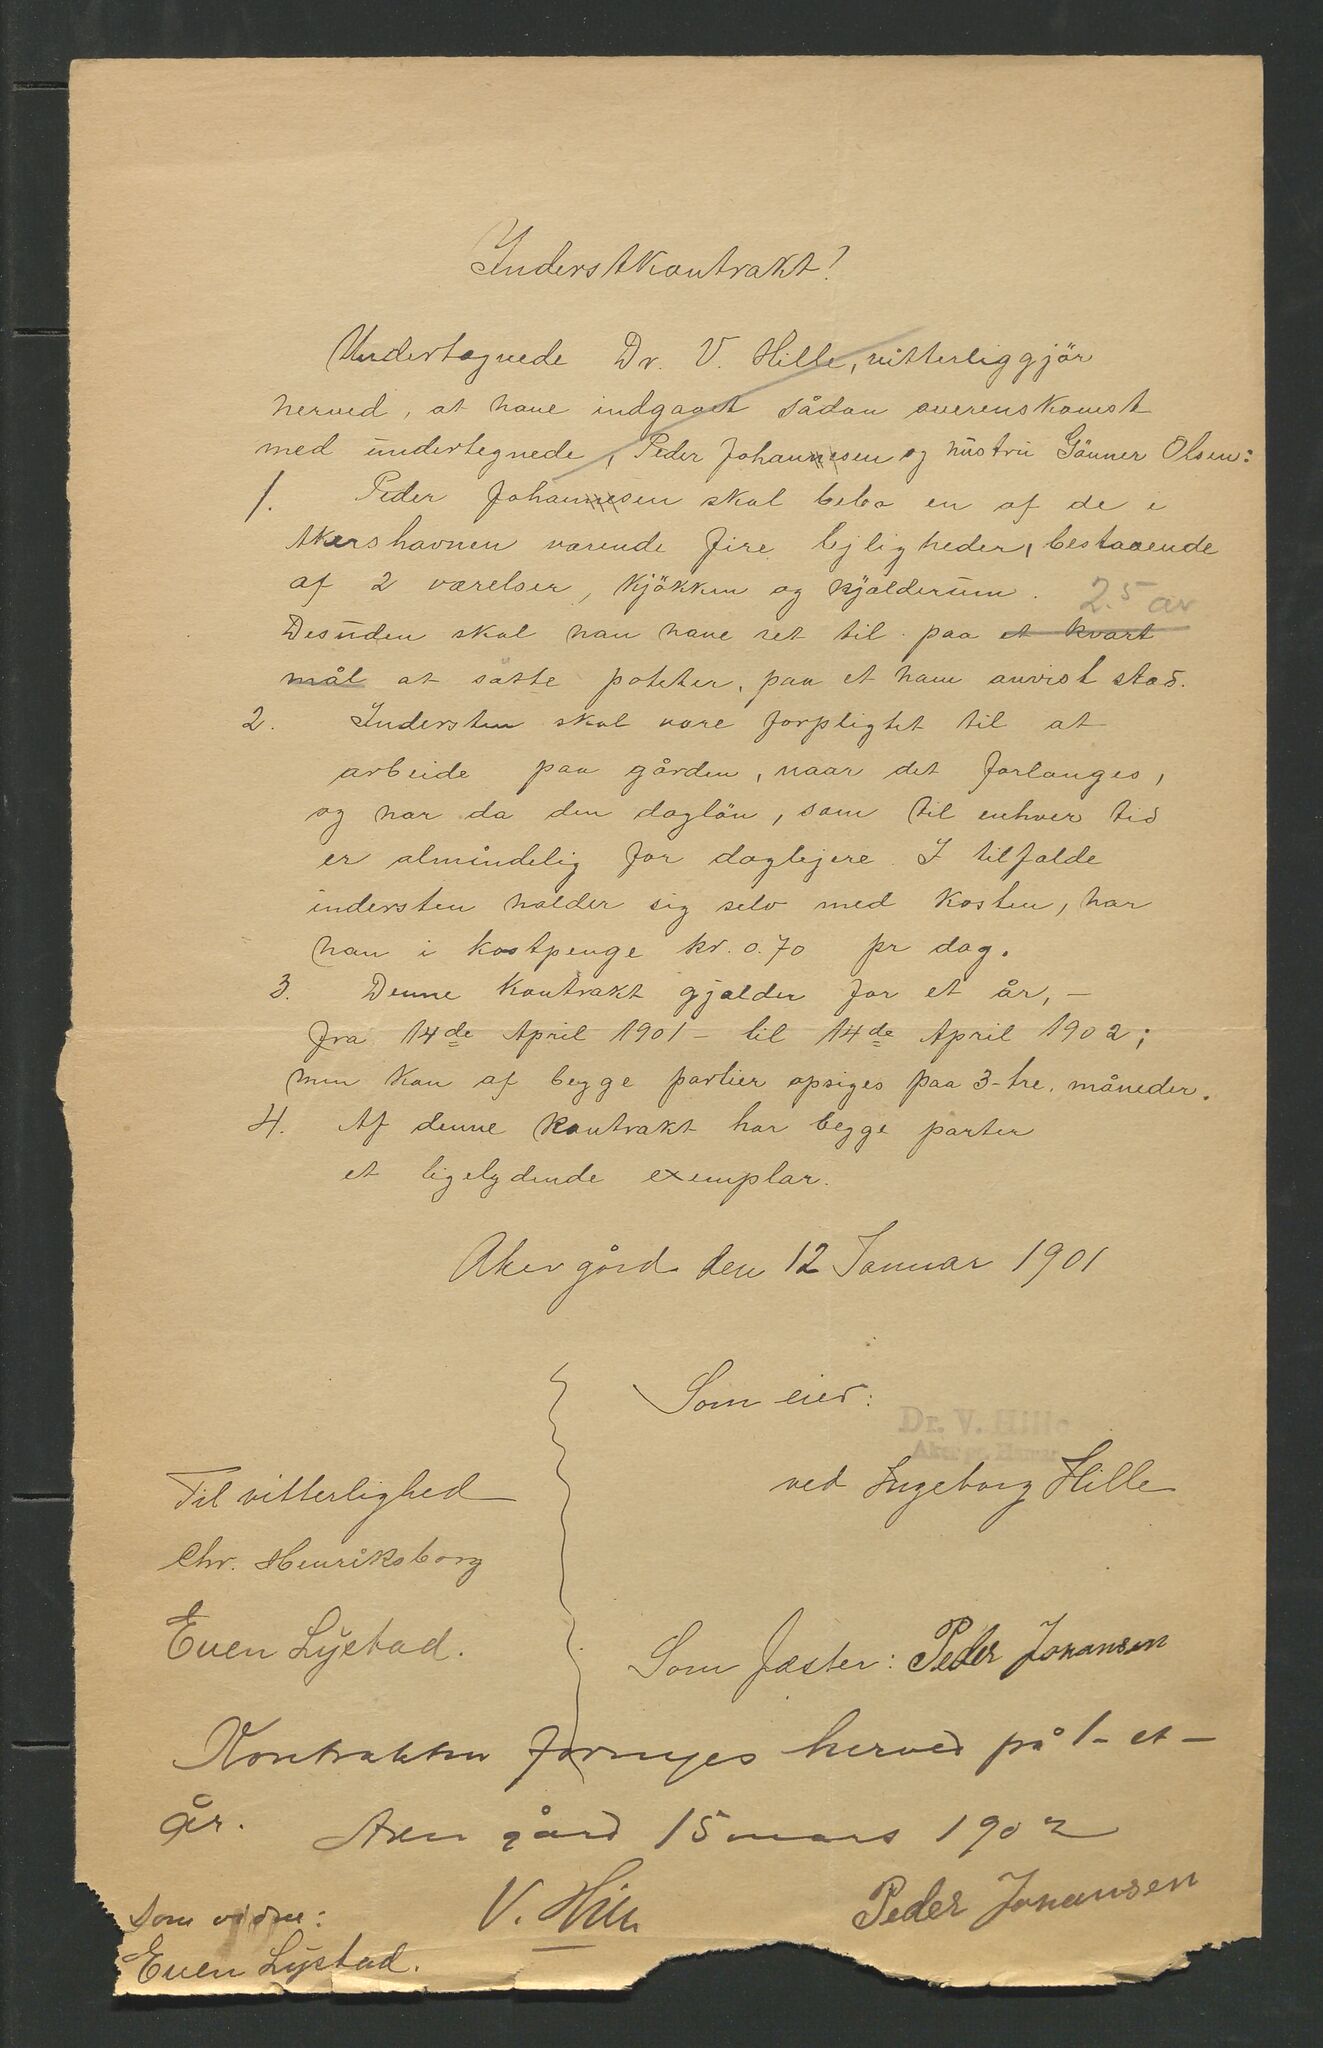 Inderstkontrakt!
Undertegnede Dr. V. Hille, vitterliggjör
herved, at have indgaaet sådan overenskomst
med undertegnede, Peder Johannesen og hustru Gönner Olsen:
1. Peder Johannesen skal bebo en af de i
Akershavnen værende fire lejligheder, bestaaende
af 2 værelser, kjökken og kjælderum.
2.5 ar
Desuden skal han have ret til paa et kvart
mål at sætte poteter, paa et ham anvist sted.
2. Indersten skal være forpligtet til at
arbeide paa gården, naar det forlanges,
og har da den daglön, som til enhver tid
er almindelig for daglejere. I tilfælde
indersten holder sig selv med kosten, har
han i kostpenge kr. 0.70 pr dag.
3. Denne kontrakt gjælder for et år, —
fra 14de April 1901 – til 14de April 1902;
men kan af begge partier opsiges paa 3-tre. måneder.
4. Af denne kontrakt har begge parter
et ligelydende exemplar.
Aker gård den 12 Januar 1901
Som eier:
Dr. V. Hille
Aker pr. Hamar
ved Ingeborg Hille
Til vitterlighed
Chr. Henriksborg
Even Lystad.
Som fæster: Peder Johansen
Kontrakten fornyes herved på 1 - et -
år. Aker gård 15 mars 1902
V. Hille
Peder Johansen
Som vidne:
Even Lystad.